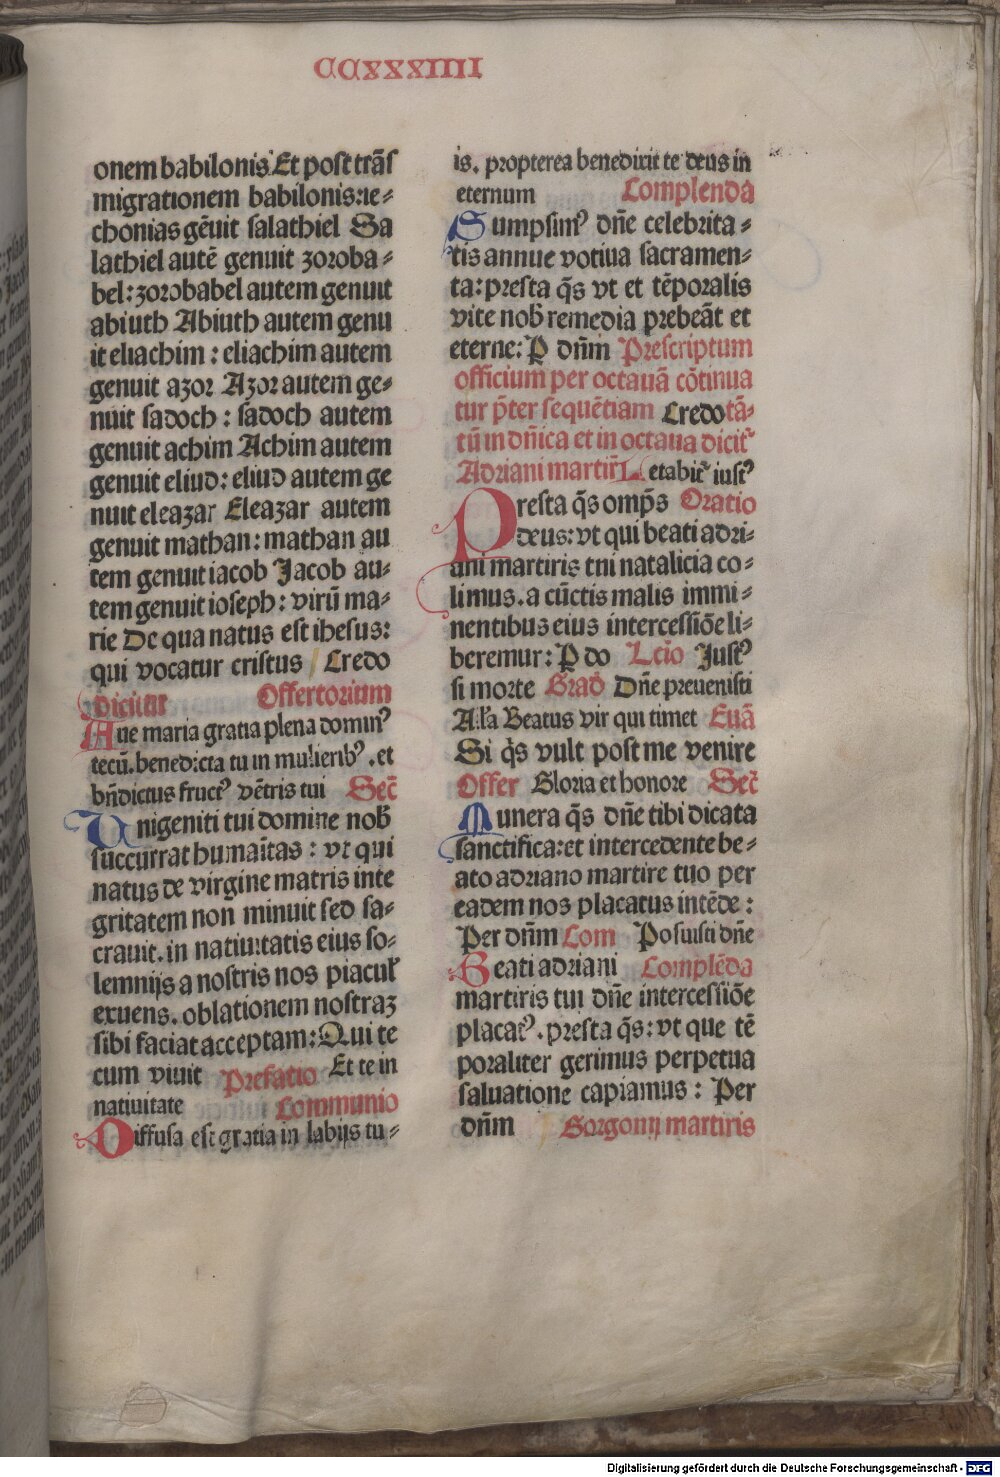 CCXXXIIII
onem babilonis Et post trāſ
migrationem babilonis: ie-
chonias gēuit salathiel Sa
lathiel autē genuit zoroba-
bel: zorobabel autem genuit
abiuth Abiuth autem genu
it eliachim: eliachim autem
genuit azor Azor autem ge-
nuit sadoch: sadoch autem
genuit achim Achim autem
genuit eliud: eliud autem ge
nuit eleazar Eleazar autem
genuit mathan: mathan au
tem genuit iacob Jacob au-
tem genuit ioseph: virū ma-
rie De qua natus est ihesus:
qui vocatur cristus Credo
dicitur Offertorium
Aue maria gratia plena dominꝰ
tecū. benedicta tu in mulieribꝰ. et
bn̄dictus fructꝰ vētris tui Sec̄
Unigeniti tui domine nob̄
succurrat humāitas: vt qui
natus de virgine matris inte
gritatem non minuit sed sa-
crauit. in natiuitatis eius so-
lemnijs a nostris nos piacul̄
exuens. oblationem nostraz
sibi faciat acceptam: Qui te
cum viuit Prefatio Et te in
natiuitate Communio
Diffusa est gratia in labijs tu-
is. propterea benedixit te deus in
eternum Complenda
Sumpsimꝰ dn̄e celebrita-
tis annue votiua sacramen-
ta: presta q̄s vt et tēporalis
vite nob̄ remedia prebeāt et
eterne: P dn̄m Prescriptum
officium per octauā cōtinua
tur p̄ter sequētiam Credo tā-
tū in dn̄ica et in octaua dicit᷑
Adriani martir̄ Letabit᷑ iustꝰ
Presta q̄s omp̄s Oratio
deus: vt qui beati adri-
ani martiris tui natalicia co-
limus. a cūctis malis immi-
nentibus eius intercessiōe li-
beremur: P do Lc̄io Justꝰ
si morte Grad̄ Dn̄e preuenisti
Al̄a Beatus vir qui timet Euā
Si q̄s vult post me venire
Offer Gloria et honore Sec̄
Munera q̄s dn̄e tibi dicata
sanctifica: et intercedente be-
ato adriano martire tuo per
eadem nos placatus intēde:
Per dn̄m Com Posuisti dn̄e
Beati adriani Complēda
martiris tui dn̄e intercessiōe
placatꝰ. presta q̄s: vt que tē
poraliter gerimus perpetua
saluatione capiamus: Per
dn̄m Gorgonij martiris
Digitalisierung gefördert durch die Deutsche Forschungsgemeinschaft - DFG